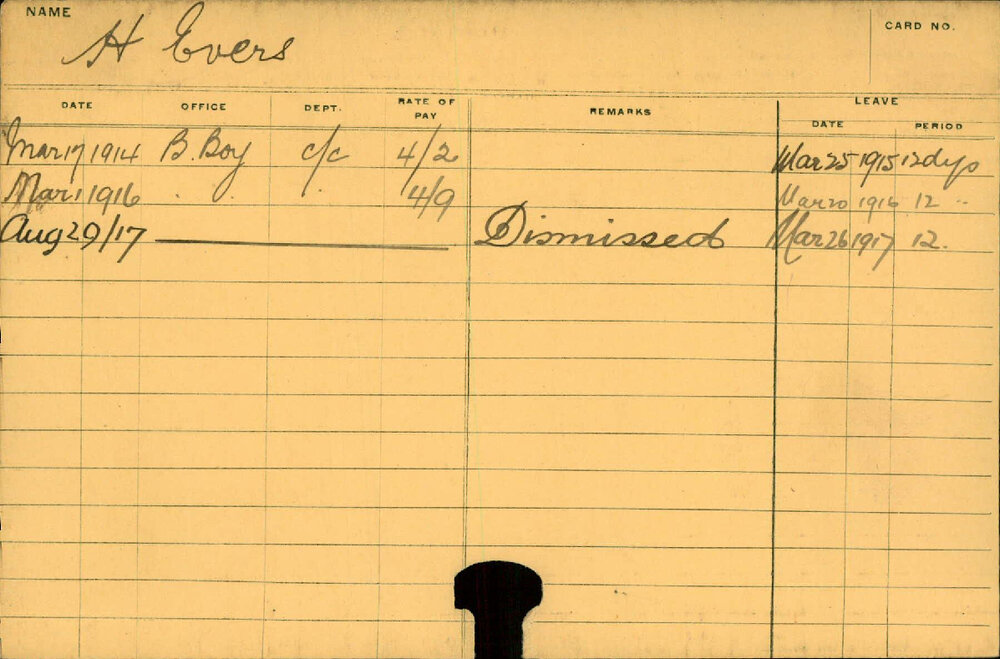 NAME
H Evers
CARD NO.
DATE OFFICE DEPT. RATE OF PAY REMARKS LEAVE
DATE PERIOD
Mar 17 1914 B. Boy c/c 4/2 Mar 25 1915 12 dys
Mar 1 1916 . . 4/9 Mar 20 1916 12 ..
Aug 29/17 Dismissed Mar 26 1917 12.